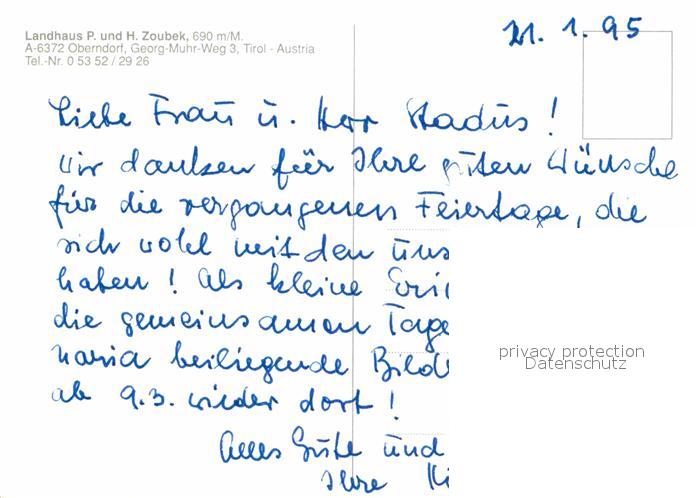 Landhaus P. und H. Zoubek, 690 m/M.
A-6372 Oberndorf, Georg-Muhr-Weg 3, Tirol - Austria
Tel.-Nr. 0 53 52 / 29 26
21. 1. 95
Liebe Frau u. Herr Stadus!
Wir danken für Ihre guten Wünsche
für die vergangenen Feiertage, die
sich wohl mit den uns
haben! Als kleine Erin
die gemeinsamen Tage
naria beiliegende Bild
ab 9.3. wieder dort!
Alles Gute und
Ihre
privacy protection
Datenschutz